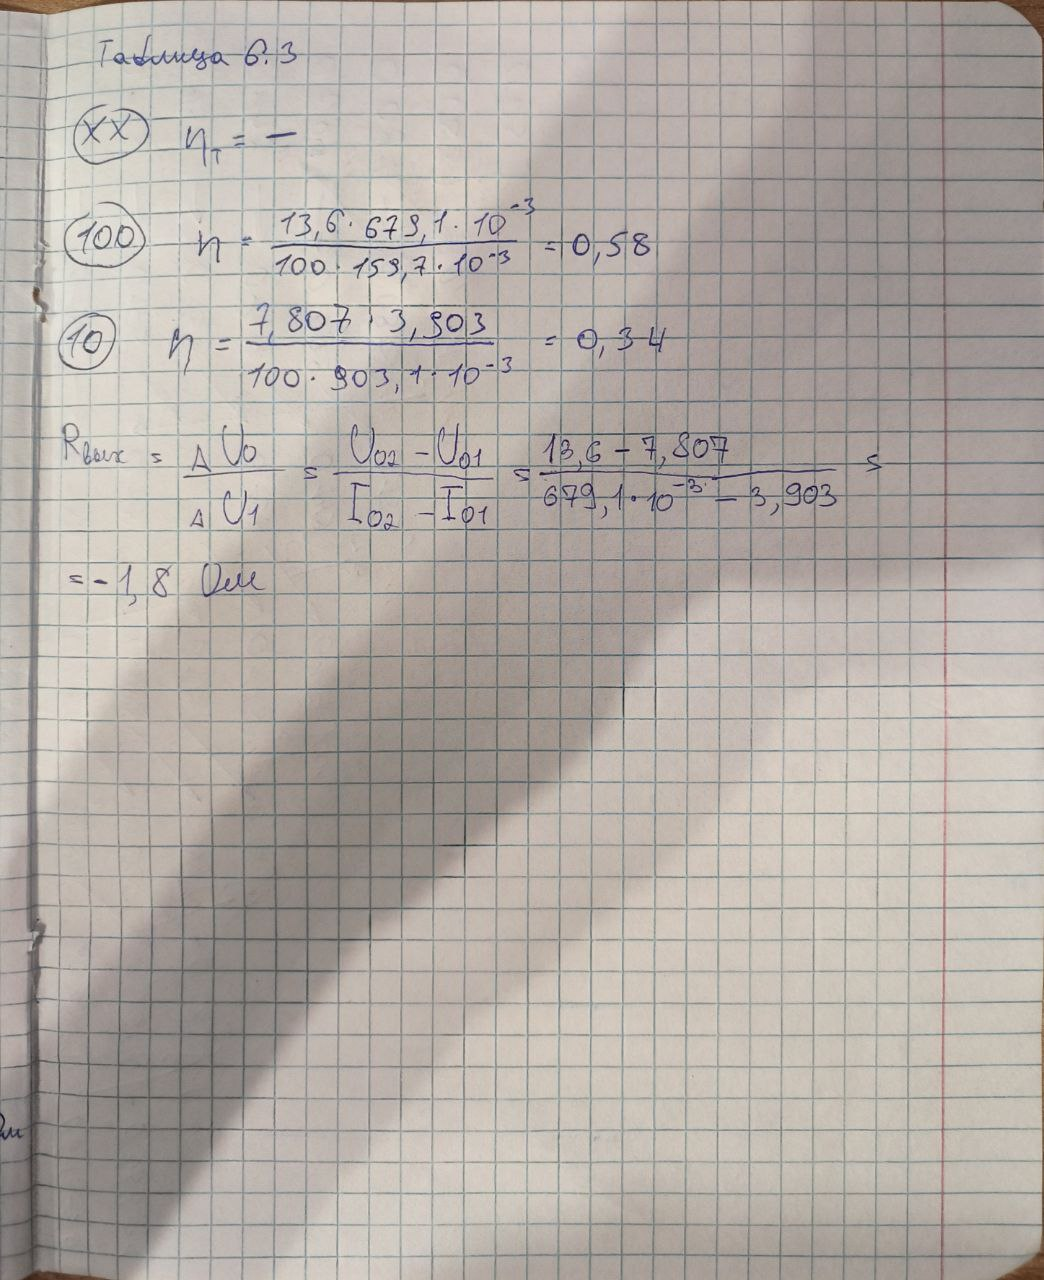 Таблица 6.3
XX η_т = —
100 η = (13,6 · 679,1 · 10^-3) / (100 · 159,7 · 10^-3) = 0,58
10 η = (7,807 · 3,903) / (100 · 903,1 · 10^-3) = 0,34
R_вых = ΔU_0 / ΔU_1 = (U_02 - U_01) / (I_02 - I_01) = (13,6 - 7,807) / (679,1 · 10^-3 - 3,903) =
= -1,8 Ом